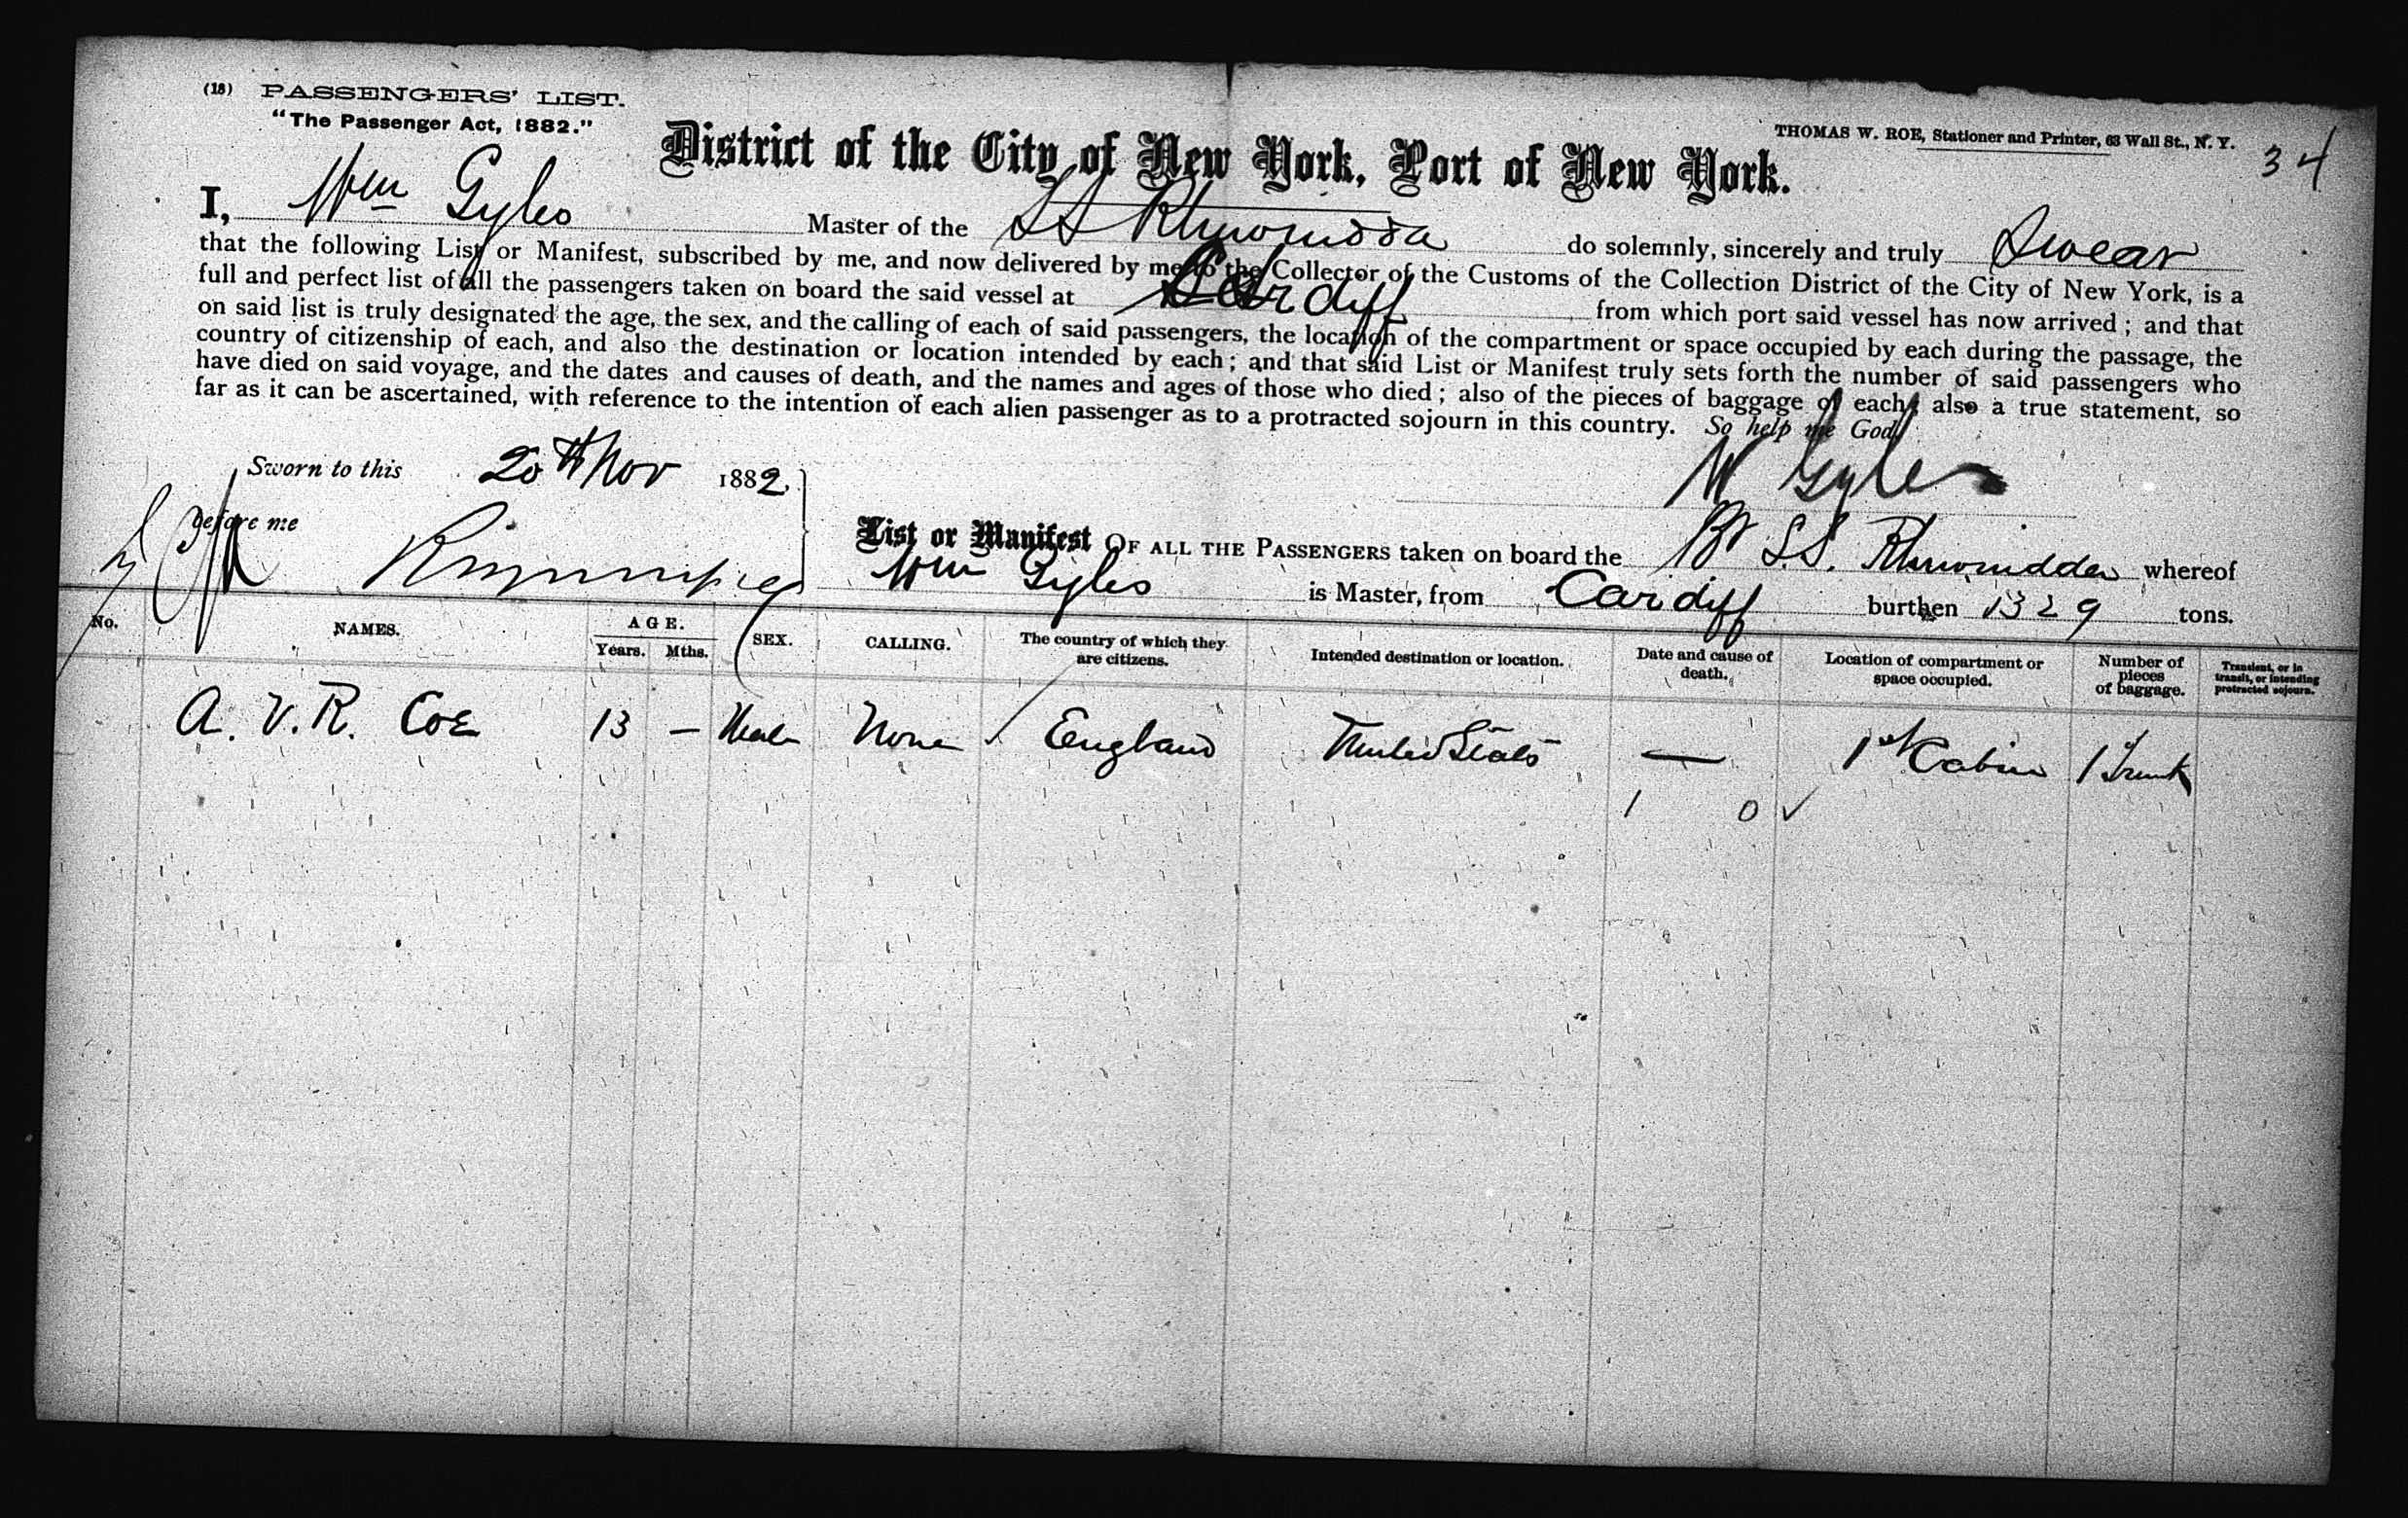 (18) PASSENGERS' LIST.
"The Passenger Act, 1882."
THOMAS W. ROE, Stationer and Printer, 63 Wall St., N. Y.
34
District of the City of New York, Port of New York.
I, Wm Gyles Master of the SS do solemnly, sincerely and truly Swear
that the following List or Manifest, subscribed by me, and now delivered by me to the Collector of the Customs of the Collection District of the City of New York, is a
full and perfect list of all the passengers taken on board the said vessel at Cardiff from which port said vessel has now arrived; and that
on said list is truly designated the age, the sex, and the calling of each of said passengers, the location of the compartment or space occupied by each during the passage, the
country of citizenship of each, and also the destination or location intended by each; and that said List or Manifest truly sets forth the number of said passengers who
have died on said voyage, and the dates and causes of death, and the names and ages of those who died; also of the pieces of baggage of each; also a true statement, so
far as it can be ascertained, with reference to the intention of each alien passenger as to a protracted sojourn in this country. So help me God.
W Gyles
Sworn to this 20th Nov 1882,
before me
List or Manifest OF ALL THE PASSENGERS taken on board the Br S.S. whereof
Wm Gyles is Master, from Cardiff burthen 1329 tons.
No. NAMES. AGE. Years. Mths. SEX. CALLING. The country of which they are citizens. Intended destination or location. Date and cause of death. Location of compartment or space occupied. Number of pieces of baggage. Transient, or in transit, or intending protracted sojourn.
A. V. R. Coe 13 — Male None / England United States — 1st Cabin 1 Trunk
1 0 ✓